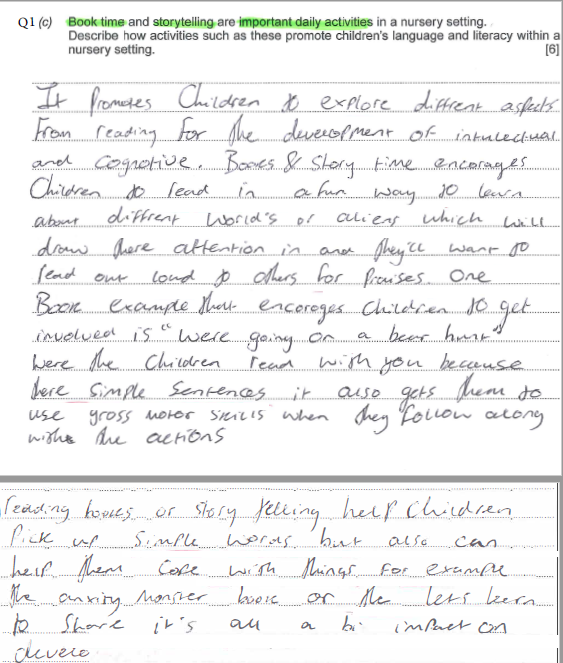 Q1 (c) Book time and storytelling are important daily activities in a nursery setting.
Describe how activities such as these promote children's language and literacy within a
nursery setting. [6]
It Promotes Children to explore diffrent aspects
From reading for the development of intulectual
and cognotive. Books & Story time encorages
Children to read in a fun way to learn
about diffrent world's or aliens which will
draw there attention in and they'll want to
read out loud to others for Praises. One
Book example that encorages Children to get
involved is "were going on a bear hunt"
were the Children read with you because
there simple sentences it also gets them to
use gross motor skills when they follow along
with the actions
reading books or story telling help Children
Pick up simple words but also can
help them cope with things for example
the anxity monster book or the lets learn
to share it's all a bi impact on
develo